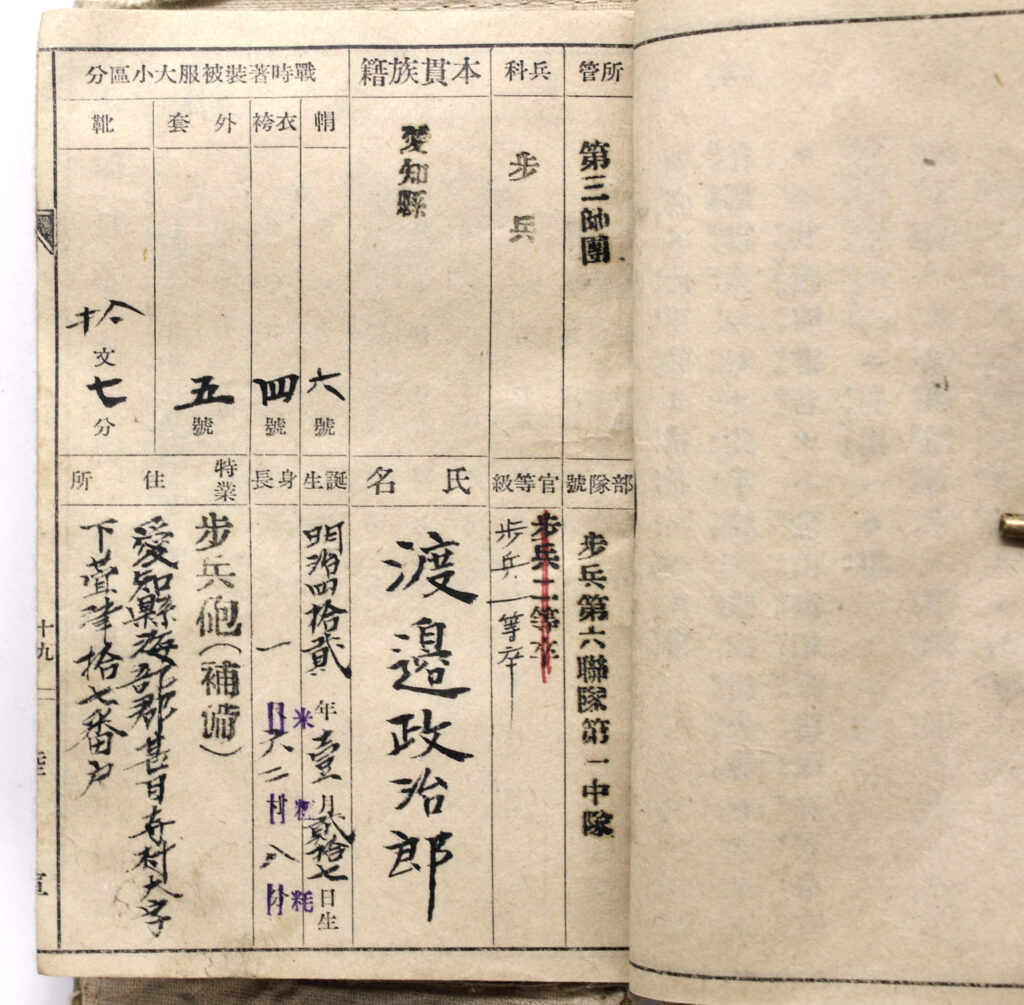 所管
第三師團
兵科
步兵
本貫族籍
愛知縣
戰時著裝被服大小區分
帽
六號
衣袴
四號
外套
五號
靴
拾文七分
部隊號
步兵第六聯隊第一中隊
官等級
步兵二等卒
步兵一等卒
氏名
渡邉政治郎
誕生
明治四拾貳年壹月貳拾七日生
身長
一米六二糎八粍
特業
步兵砲(補備)
住所
愛知縣海部郡甚目寺村大字
下萱津拾七番戶
十九